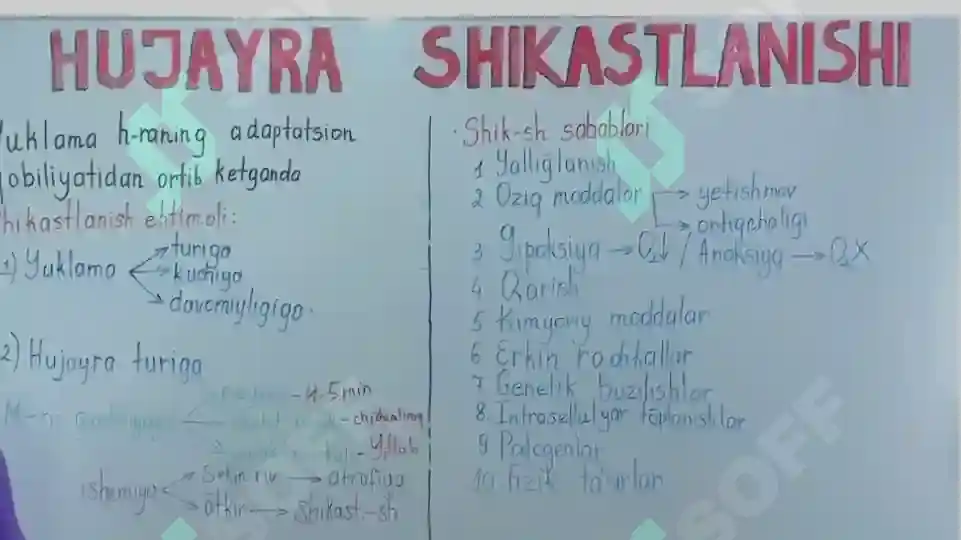 HUJAYRA SHIKASTLANISHI
Yuklama h-raning adaptatsion
qobiliyatidan ortib ketganda
Shikastlanish ehtimoli:
1) Yuklama → turiga
→ kuchiga
→ davomiyligiga.
2) Hujayra turiga
- 4-5 min
- chidamliroq
- Yillab
ishemiya → Sekin → atrofiya
→ o'tkir → shikast.-sh
· Shik-sh sabablari
1 Yallig'lanish
2 Oziq moddalar → yetishmov
→ ortiqchaligi
3 Gipoksiya → O₂↓ / Anoksiya → O₂X
4 Qarish
5 Kimyoviy moddalar
6 Erkin radikallar
7 Genetik buzilishlar
8 Intrasellulyar to'planishlar
9 Patogenlar
10 Fizik ta'sirlar
SOFF